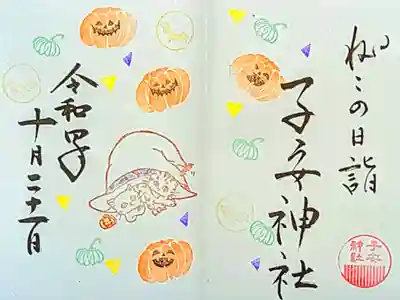 ねこの日詣
子安神社
子安
神社
令和四年
十月二十二日